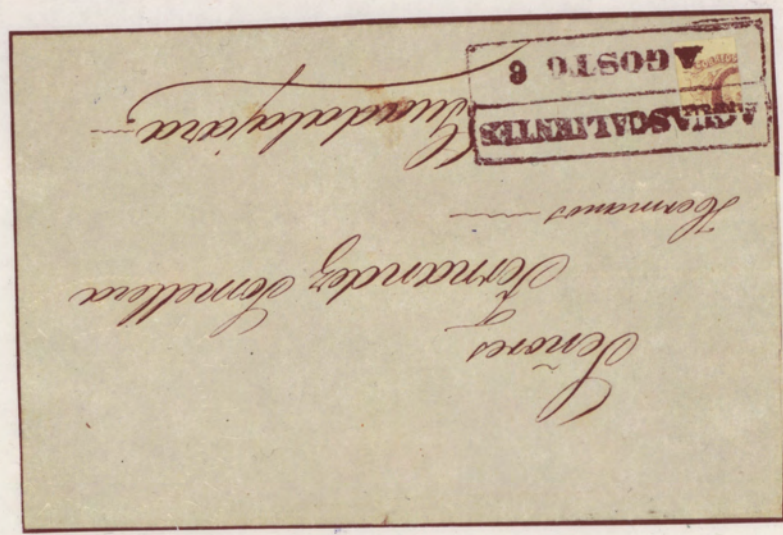 Señores
Fernandez Somellera
Hermanos
Guadalajara
AGUASCALIENTES
AGOSTO 6